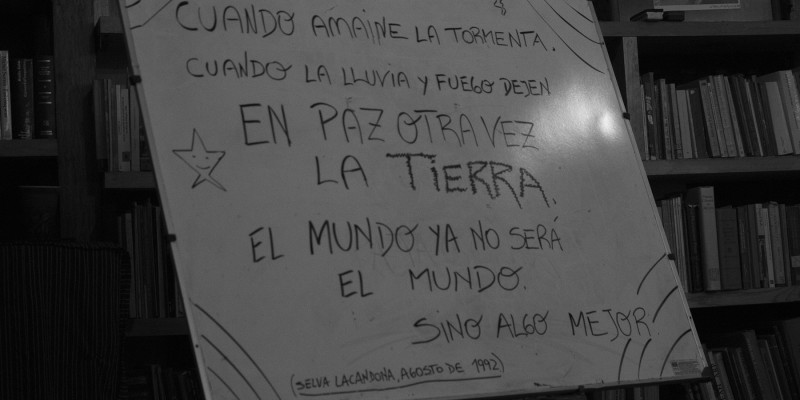 CUANDO AMAINE LA TORMENTA.
CUANDO LA LLUVIA Y FUEGO DEJEN
EN PAZ OTRA VEZ
LA TIERRA.
EL MUNDO YA NO SERÁ
EL MUNDO.
SINO ALGO MEJOR
(SELVA LACANDONA, AGOSTO DE 1992)